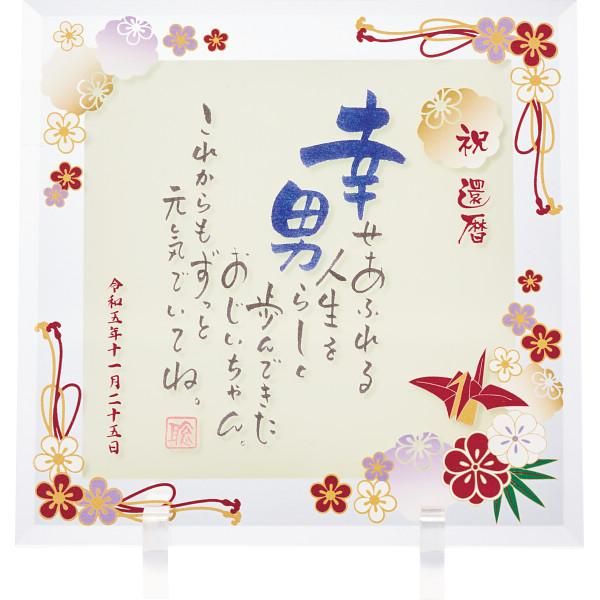 祝 還暦
幸せあふれる
人生を
男らしく
歩んできた
おじいちゃん。
これからもずっと
元気でいてね。
令和五年十一月二十五日
聡